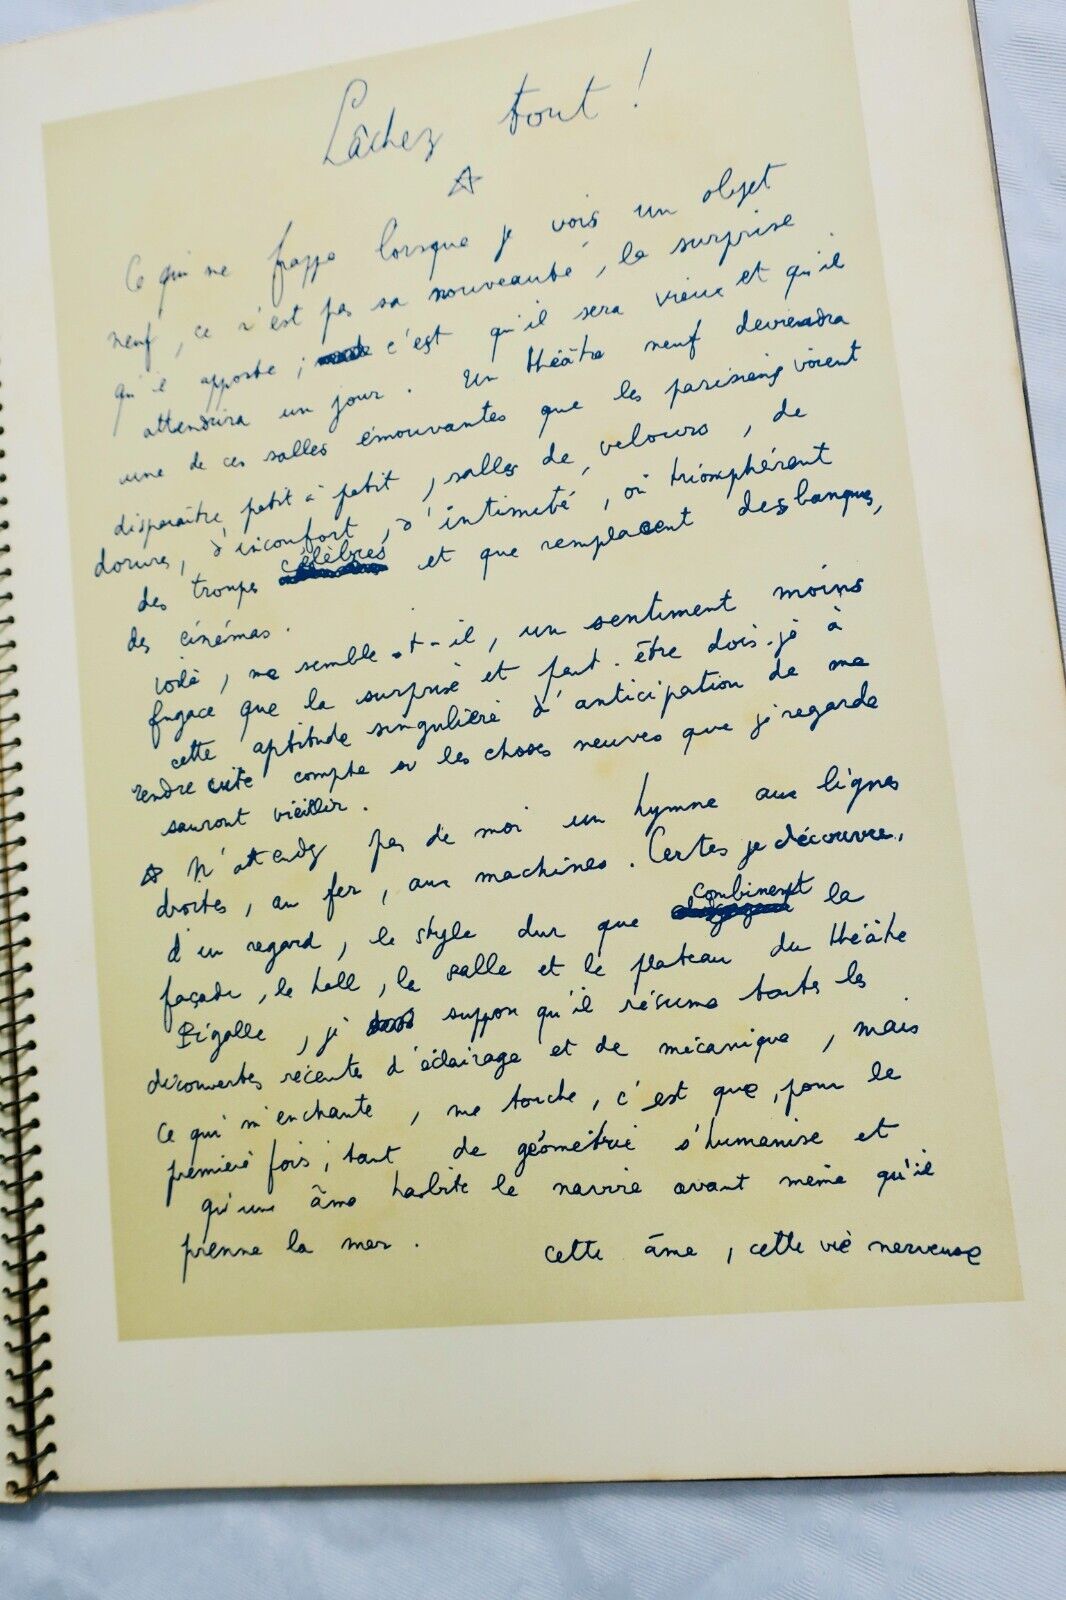 Lâchez tout !
Ce qui me frappe lorsque je vois un objet
neuf, ce n'est pas sa nouveauté, la surprise
qu'il apporte ; c'est qu'il sera vieux et qu'il
attendrira un jour. Un théâtre neuf deviendra
une de ces salles émouvantes que les parisiens voient
disparaître petit à petit, salles de velours, de
dorures, d'inconfort, d'intimité, où triomphèrent
des troupes célèbres et que remplacent des banques,
des cinémas.
Voilà, me semble-t-il, un sentiment moins
fugace que la surprise et peut-être dois-je à
cette aptitude singulière d'anticipation de me
rendre vite compte si les choses neuves que je regarde
sauront vieillir.
N'attendez pas de moi un hymne aux lignes
droites, au fer, aux machines. Certes je découvre,
d'un regard, le style dur que combinent la
façade, le hall, la salle et le plateau du théâtre
Pigalle, je suppose qu'il résume toutes les
découvertes récentes d'éclairage et de mécanique, mais
ce qui m'enchante, me touche, c'est que, pour la
première fois, tant de géométrie s'humanise et
qu'une âme habite le navire avant même qu'il
prenne la mer.
cette âme, cette vie nerveuse